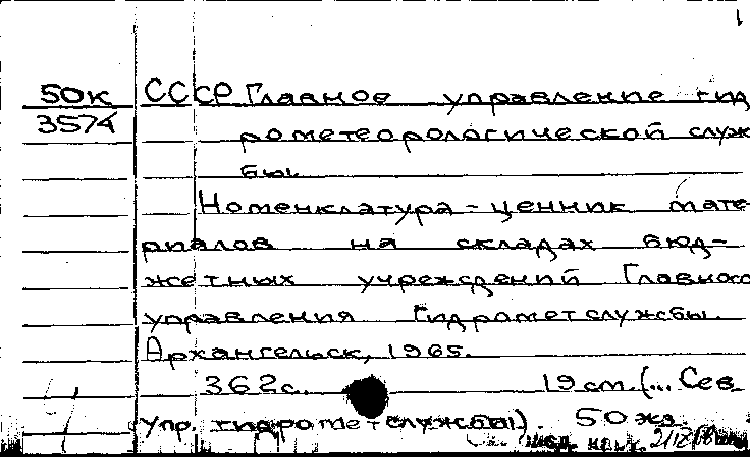 50к СССР Главное управление гид
3574 рометеорологической служ
бы.
Номенклатура-ценник мате-
риалов на складах бюд-
жетных учреждений Главного
управления Гидрометслужбы.
Архангельск, 1965.
362с. 19см. (... Сев.
Упр. гидрометслужбы). 50 экз.